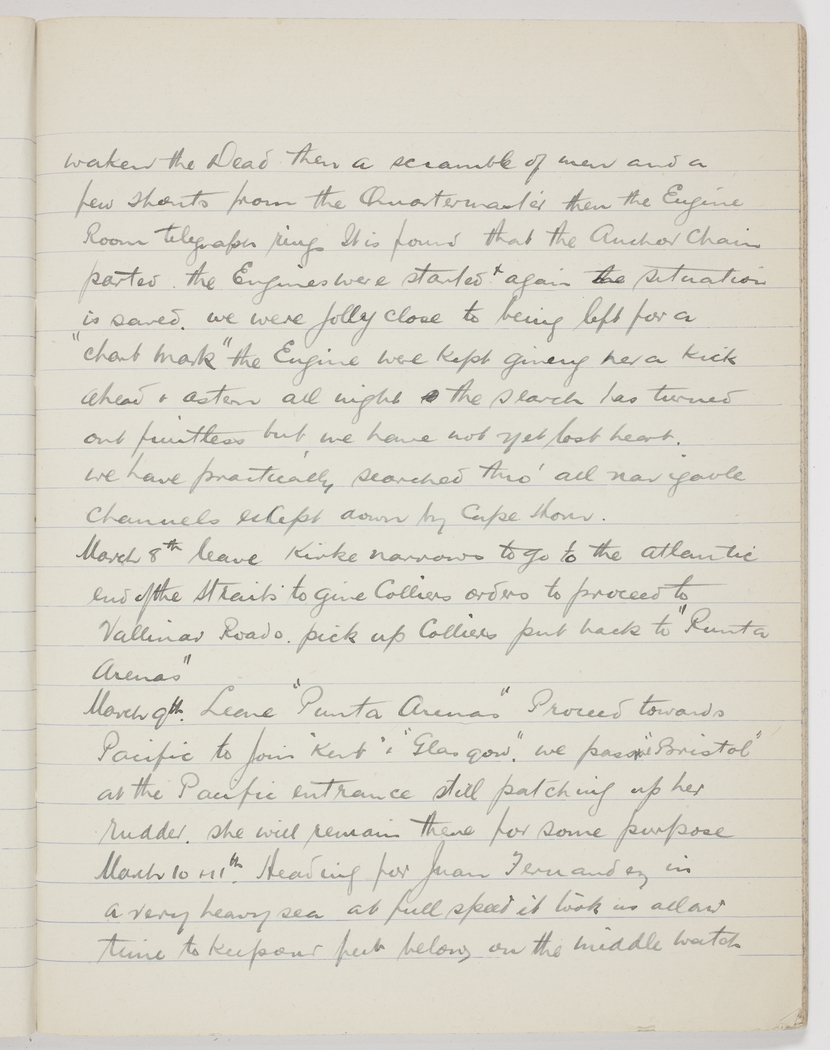 waken the Dead then a scramble of men and a
few shouts from the Quartermaster then the Engine
Room telegraph rings It is found that the Anchor Chain
parted. the Engines were started & again the situation
is saved. we were Jolly close to being left for a
"chart mark" the Engine were kept giveing her a kick
ahead & astern all night the search has turned
out fruitless but we have not yet lost heart.
we have practically searched thro' all navigable
channels exkept down by Cape Horn.
March 8th leave Kirke narrows to go to the atlantic
end of the Straits to give Colliers orders to proceed to
Vallinar Roads. pick up Colliers put back to "Punta
Arenas"
March 9th. Leave "Punta Arenas" Proceed towards
Pacific to Join "Kent" & "Glasgow". we pass "Bristol"
at the Pacific entrance still patching up her
rudder. she will remain there for some purpose
March 10 & 11th. Heading for Juan Fernandez in
a very heavy sea at full speed it took us all our
time to keep our feet below, on the middle watch